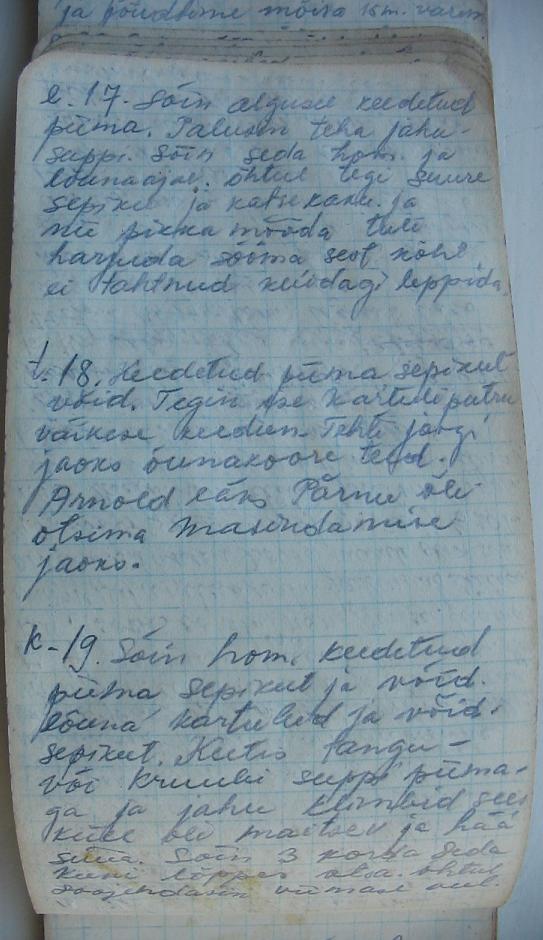 ja sõudsime mõisa km. varem
e. 17. Sõin algusel keedetud
piima. Palusin teha jahu-
suppi. Sõin seda hom. ja
lõunaajal. õhtul tegi suure
sepiku ja katsekaku. ja
nii pikka mööda tuli
harjuda sööma sest kõht
ei tahtnud kuidagi leppida.
t. 18. Keedetud piima sepikut
võid. Tegin ise kartuliputru
väikese keedun. Tehti joogi
jaoks õunakoore teed.
Arnold läks Pärnu õli
otsima masindamise
jaoks.
k-19. Sõin hom. keedetud
piima sepikut ja võid.
lõuna kartulid ja võid.
sepikut. Keetis tangu-
või kruubi suppi piima-
ga ja jahu klimbid sees
küll oli maitsev ja hää
süüa. Sõin 3 korda seda
kuni lõppes otsa. õhtul
soojendasin viimase veel.